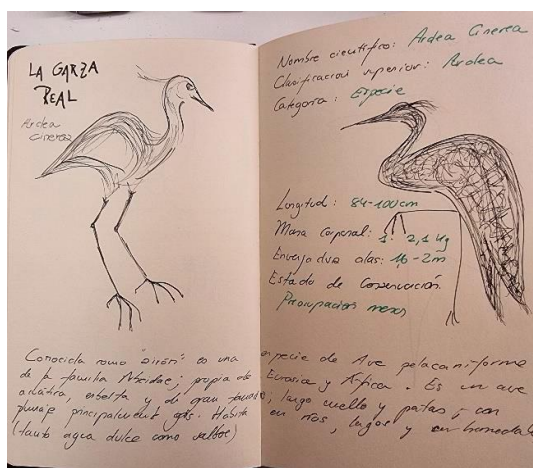 LA GARZA
REAL
Ardea
Cinerea
Nombre científico: Ardea Cinerea
Clasificación superior: Ardea
Categoría: Especie
Longitud: 84-100cm
Masa Corporal: 1- 2,1 kg
Envergadura alas: 1,6 - 2m
Estado de Conservación
Preocupación menor
Conocida como "airón" es una especie de Ave
de la familia propia de Eurasia y África. Es un ave
acuática, esberta y de gran tamaño, largo cuello y patas, con
plumaje principalment gris. Habita en ríos, lagos y en
(tanto agua dulce como